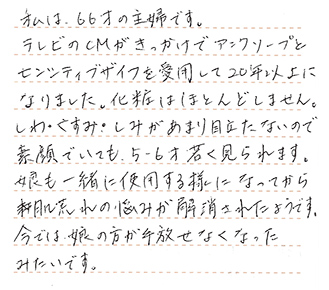 私は、66才の主婦です。
テレビのCMがきっかけでアンクソープと
センシティブザイフを愛用して20年以上に
なりました。化粧はほとんどしません。
しわ・くすみ・しみがあまり目立たないので
素顔でいても、5-6才若く見られます。
娘も一緒に使用する様になってから
肌荒れの悩みが解消されたようです。
今では娘の方が手放せなくなった
みたいです。